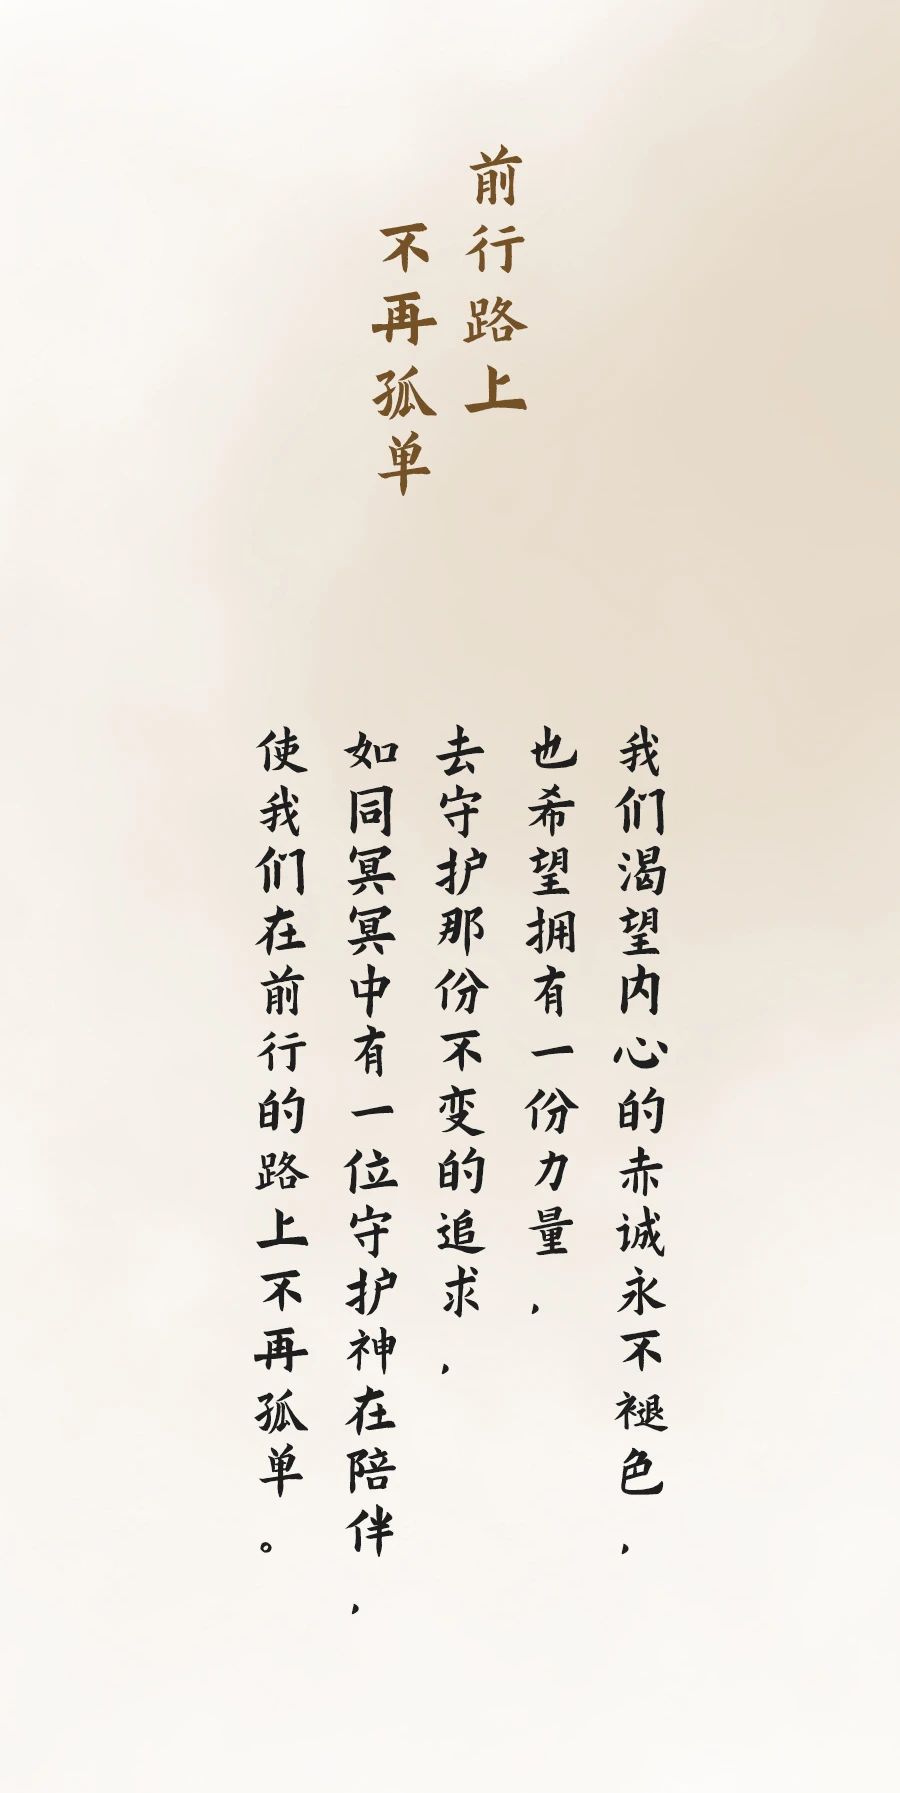 前行路上
不再孤单
我们渴望内心的赤诚永不褪色，
也希望拥有一份力量，
去守护那份不变的追求，
如同冥冥中有一位守护神在陪伴，
使我们在前行的路上不再孤单。